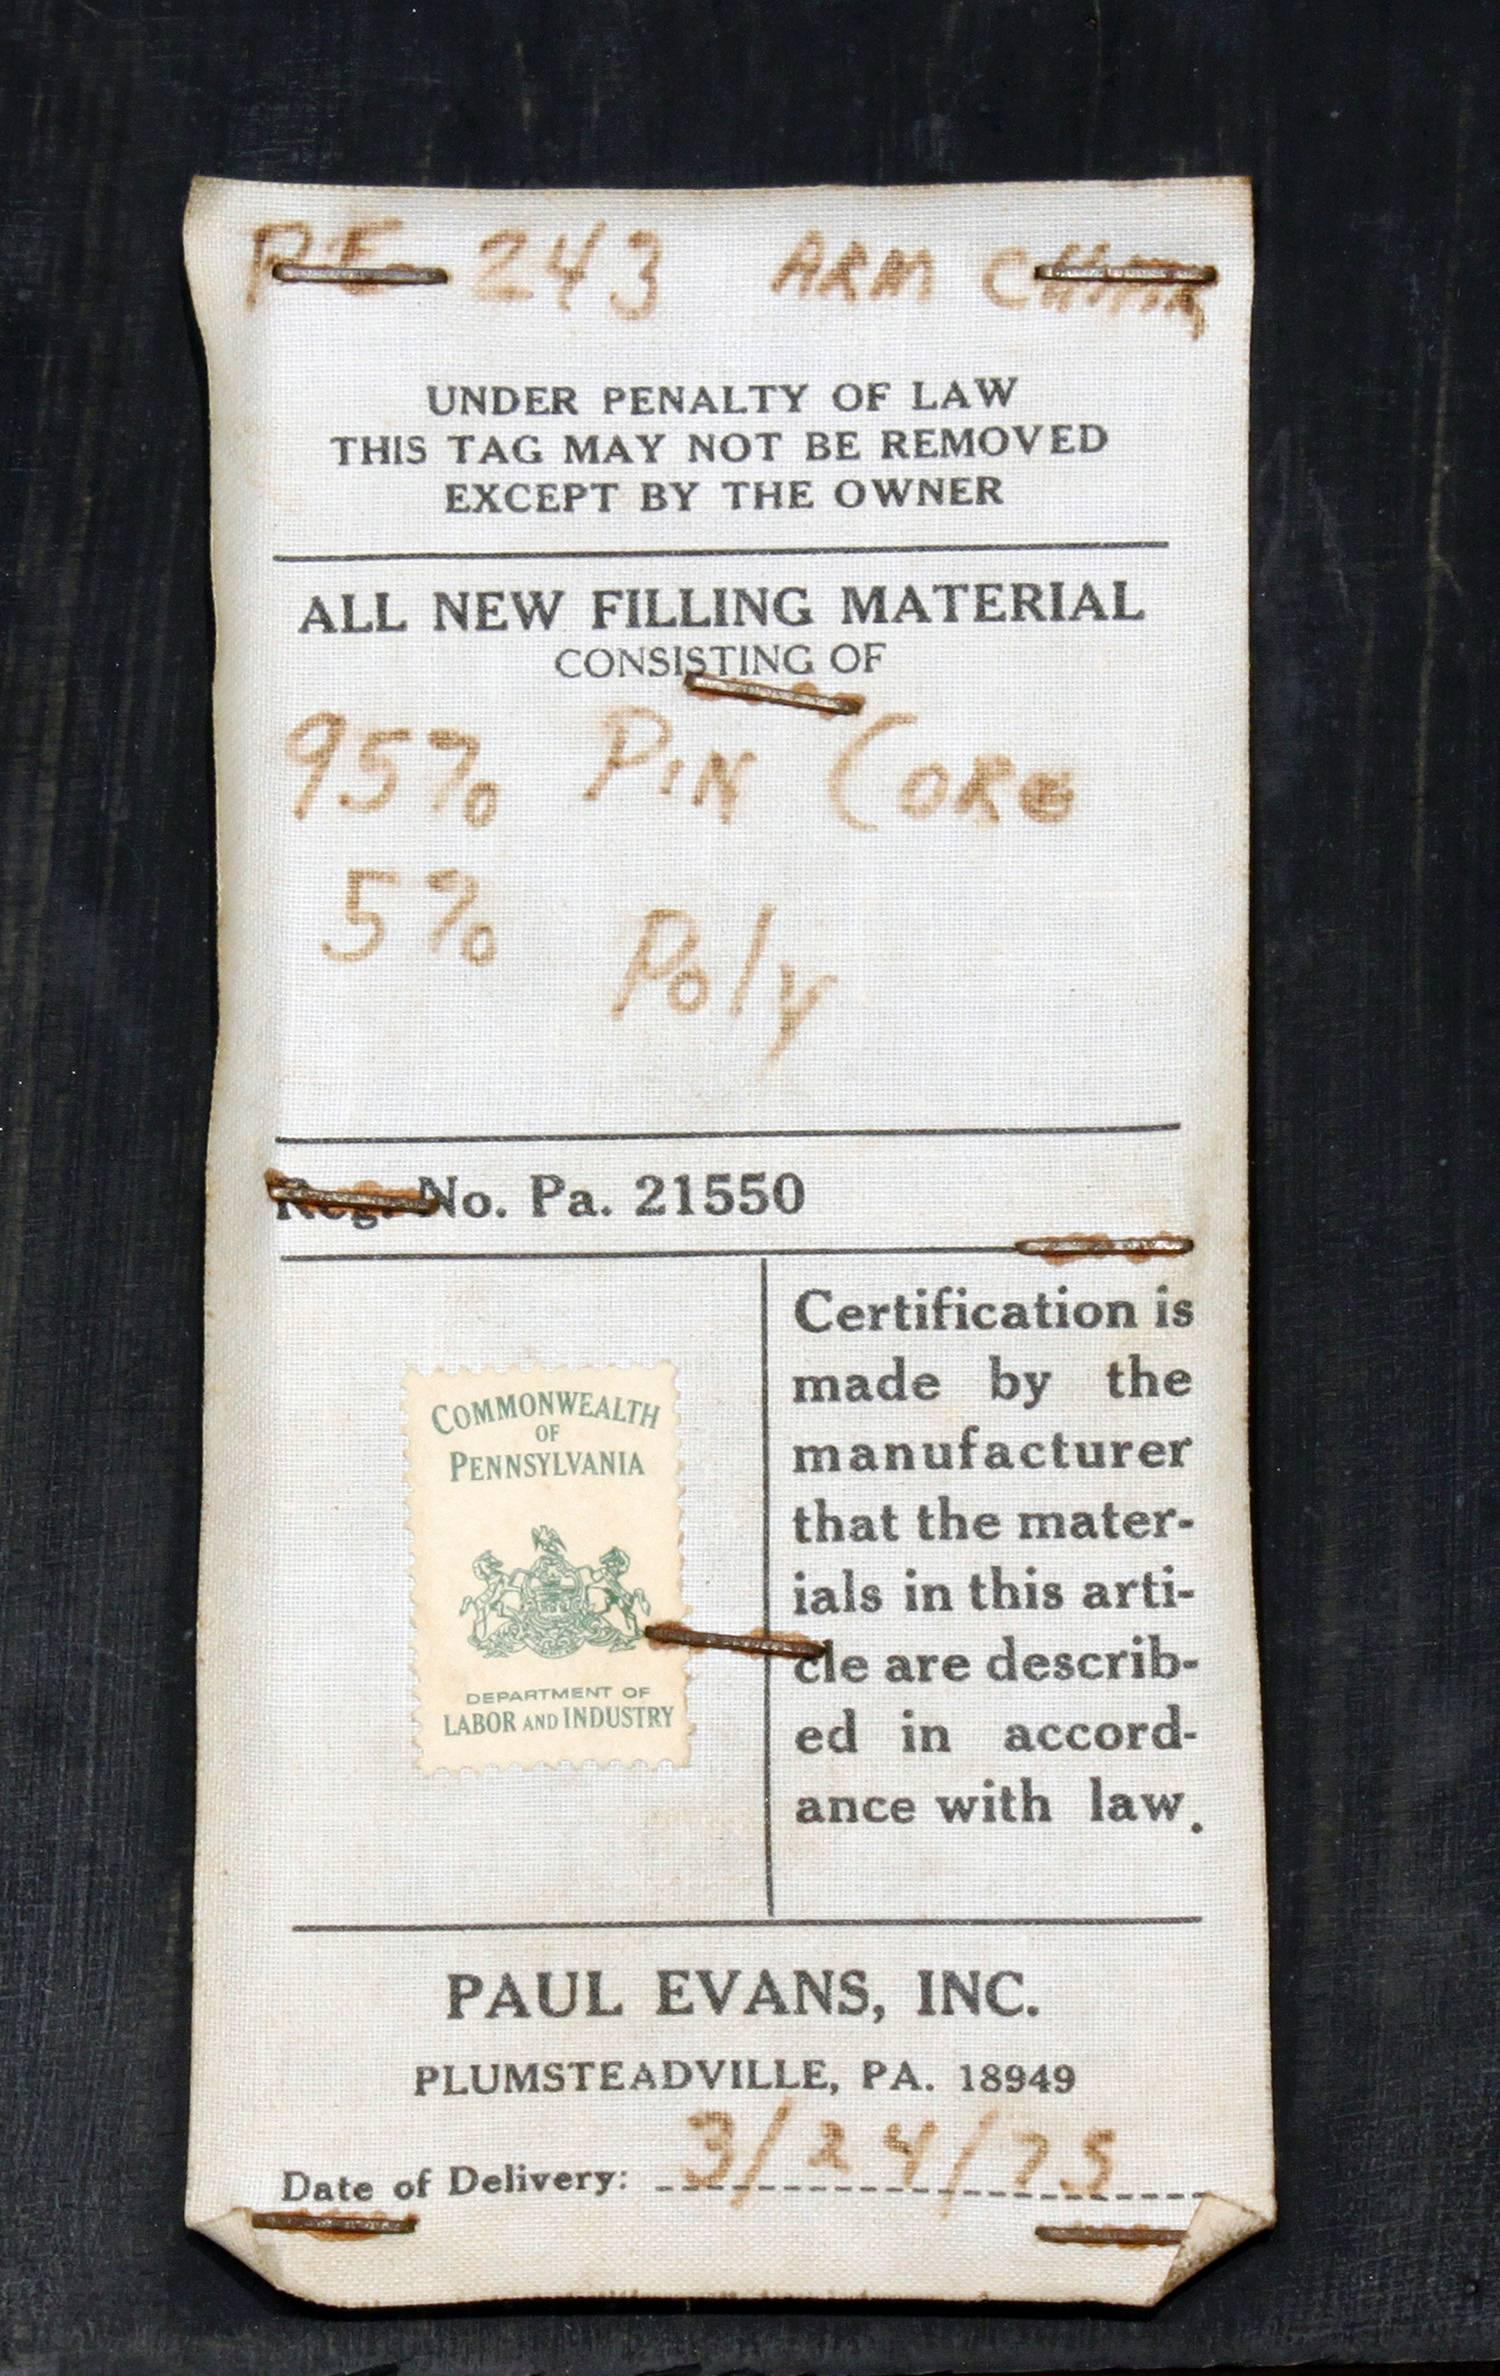 PE 243 ARM CHAIR
UNDER PENALTY OF LAW
THIS TAG MAY NOT BE REMOVED
EXCEPT BY THE OWNER
ALL NEW FILLING MATERIAL
CONSISTING OF
95% PIN CORE
5% Poly
Reg. No. Pa. 21550
COMMONWEALTH
OF
PENNSYLVANIA
DEPARTMENT OF
LABOR AND INDUSTRY
Certification is
made by the
manufacturer
that the mater-
ials in this arti-
cle are describ-
ed in accord-
ance with law.
PAUL EVANS, INC.
PLUMSTEADVILLE, PA. 18949
Date of Delivery: 3/24/75